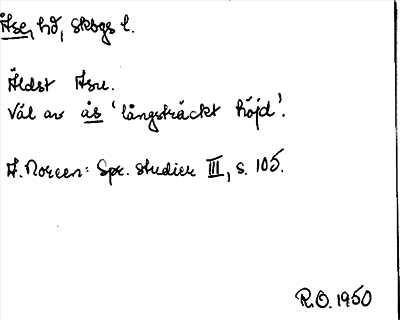 Åse, hd, Skogs l.
Äldst Asu.
Väl av ås 'långsträckt höjd'.
A. Noreen: Spr. studier III, s. 105.
R.O. 1950